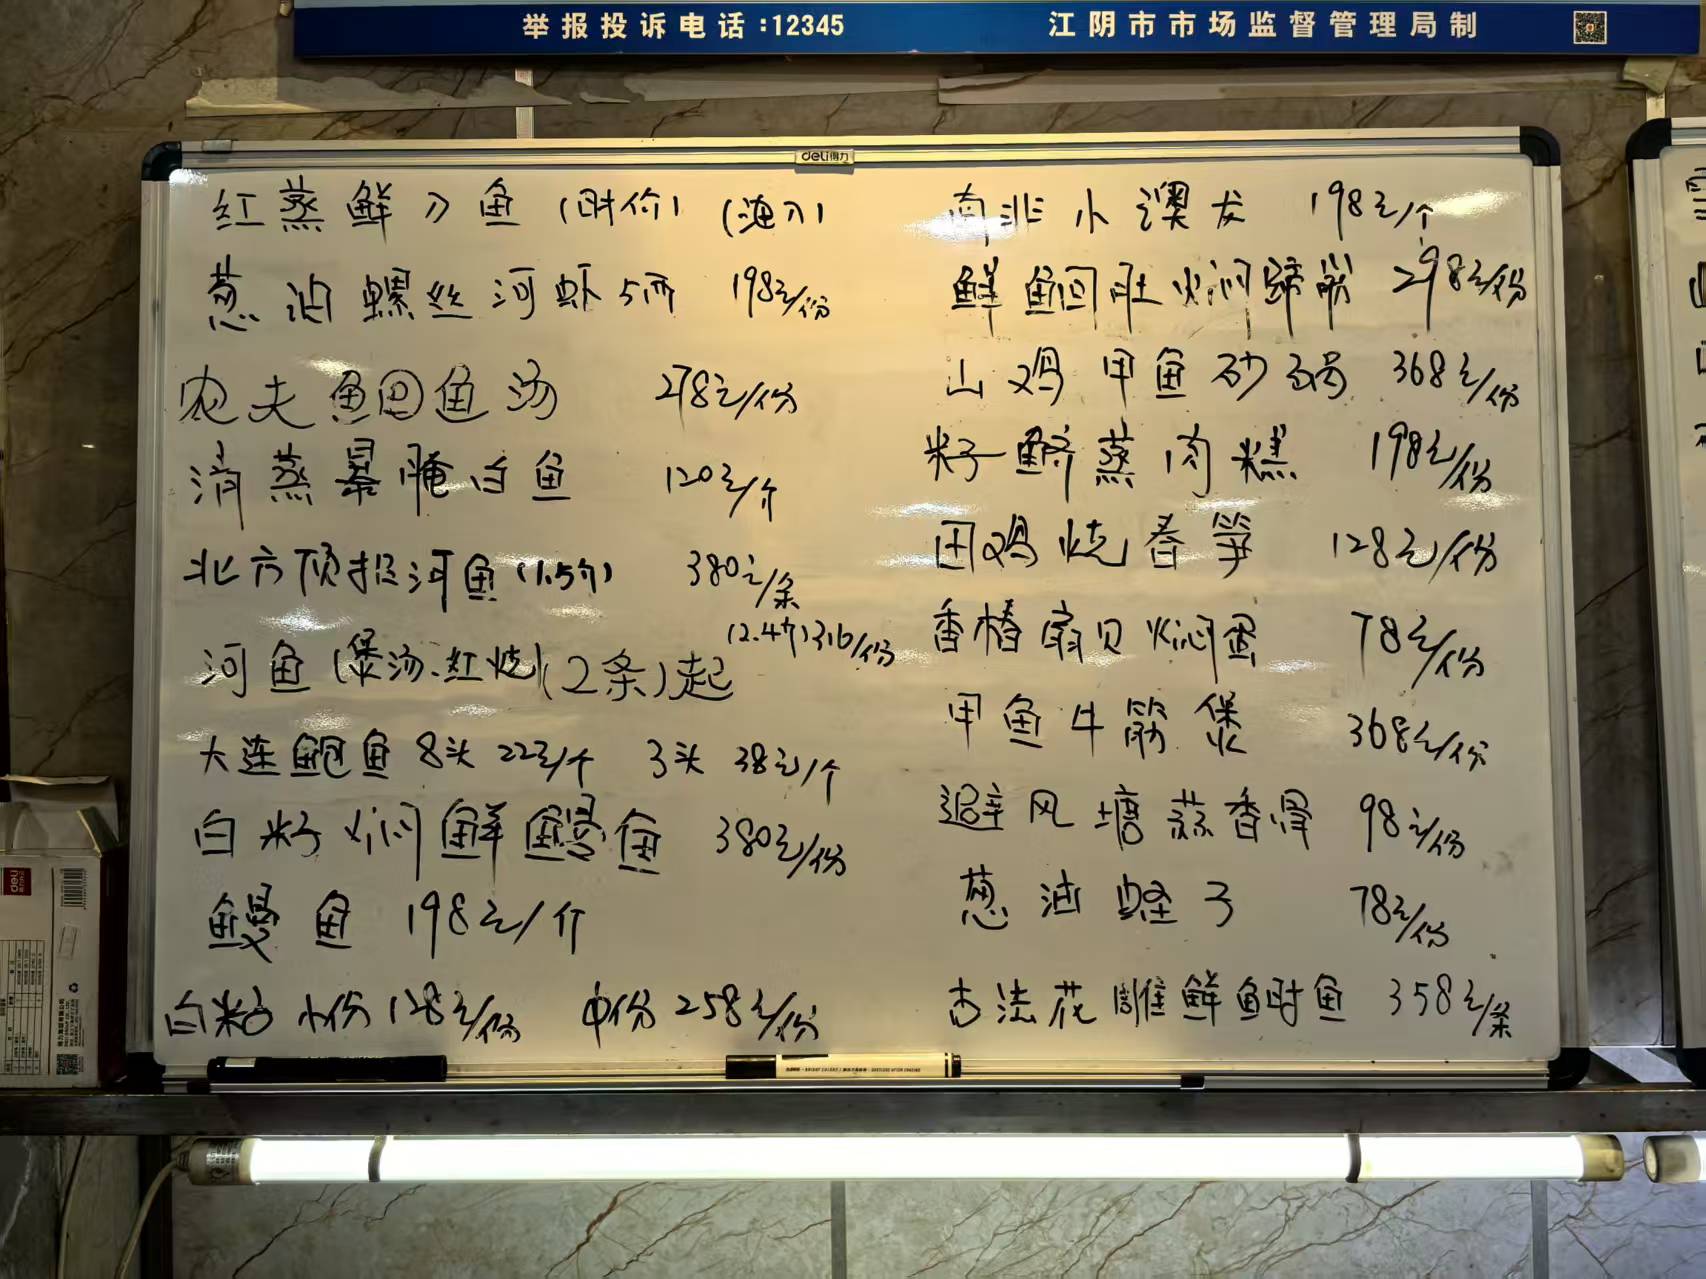 举报投诉电话:12345 江阴市市场监督管理局制
deli得力
红蒸鲜刀鱼(时价)(海刀)
葱油螺丝河虾5两 198元/份
农夫鮰鱼汤 278元/份
清蒸暴腌白鱼 120元/个
北方预报河鱼(1.5斤) 380元/条
河鱼(煲汤、红烧)(2条)起 (2.4斤)316/份
大连鲍鱼 8头 22元/个 3头 38元/个
白籽焖鲜鳗鱼 380元/份
鳗鱼 198元/斤
白籽 小份128元/份 中份258元/份
南非小澳龙 198元/个
鲜鮰肚焖蹄筋 298元/份
山鸡甲鱼砂锅 368元/份
籽鲚蒸肉糕 198元/份
田鸡烧春笋 128元/份
香椿扇贝焖蛋 78元/份
甲鱼牛筋煲 368元/份
避风塘蒜香骨 98元/份
葱油蛏子 78元/份
古法花雕鲜鲥鱼 358元/条
deli